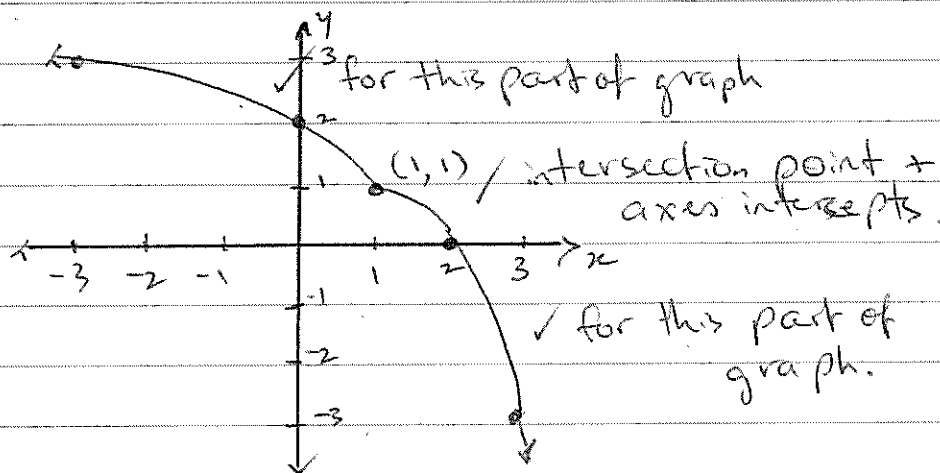 y
3 ✓ for this part of graph
2
1 (1,1) / intersection point +
axes intersepts.
-3 -2 -1 1 2 3 x
-1
✓ for this part of
graph.
-2
-3